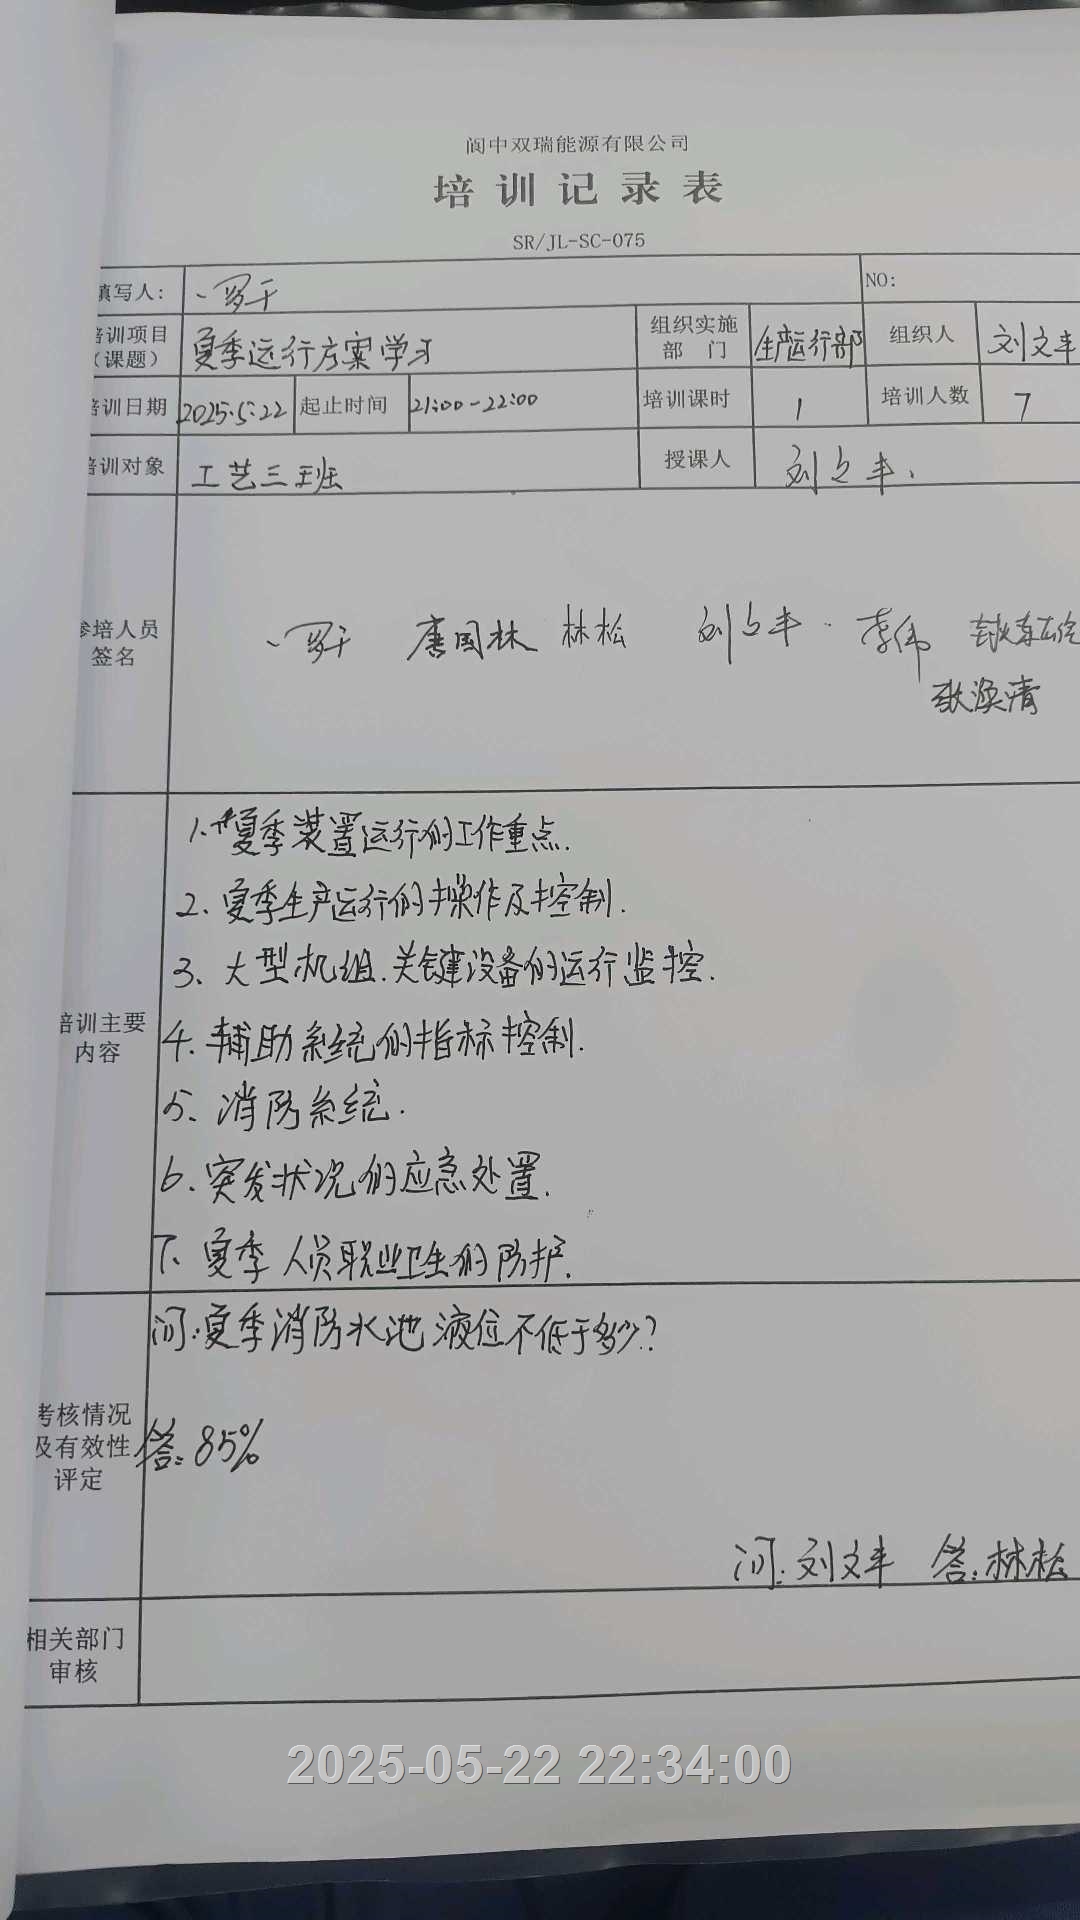 阆中双瑞能源有限公司
培训记录表
SR/JL-SC-075
填写人: NO:
培训项目(课题) 夏季运行方案学习 组织实施部门 生产运行部 组织人 刘文丰
培训日期 2025.5.22 起止时间 21:00-22:00 培训课时 1 培训人数 7
培训对象 工艺三班 授课人 刘文丰.
参培人员签名 唐国林 林松 刘文丰 李伟
张涣清
培训主要内容
1.夏季装置运行的工作重点.
2、夏季生产运行的操作及控制.
3、大型机组.关键设备的运行监控.
4.辅助系统的指标控制.
5、消防系统.
6.突发状况的应急处置.
7.夏季人员职业卫生的防护.
考核情况及有效性评定
问:夏季消防水池液位不低于多少?
答:85%
问:刘文丰 答:林松
相关部门审核
2025-05-22 22:34:00